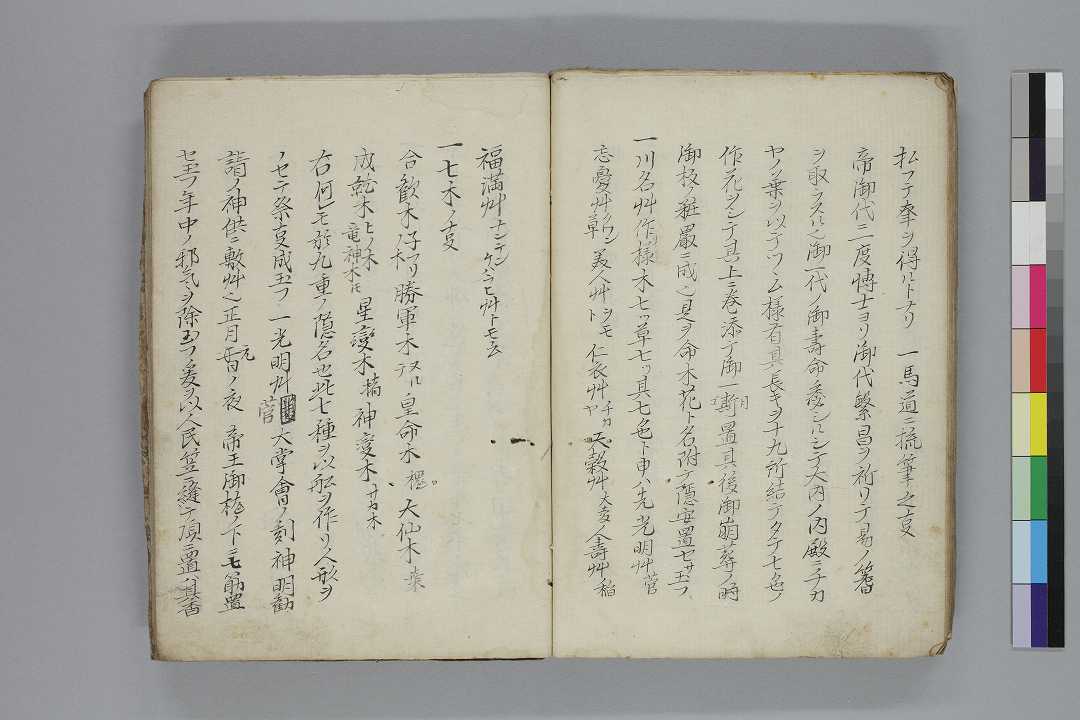 払フテ奉ヲ得ハトナリ 一馬道ニ梳筆之夏
帝御代ニ一度博士ヨリ御代繁昌ヲ祈リテ易ノ筮
ヲ取フスル之御一代ノ御壽命委シルシテ大内ノ内殿ニチカ
ヤノ葉ヲ以テツム様有其長キヲ十九所結テタテ七色ノ
作花ヲシテ其上ニ巻添テ御一 置其後御崩葬ノ時
御扱ノ粧嚴ニ成之是ヲ命木花ト名附テ隠安置セサ玉フ
一川名艸作様木七ツ草七ツ其七色ト申ハ先光明艸菅
忘憂艸クワン草 美人艸トヲモ 仁衣艸チカヤ 五穀艸大麦 人壽艸稲
福満艸ナンテン トモ云
一七木ノ夏
合歓木子フリノ木 勝軍木ヌルテ 皇命木 大仙木葉
成就木ヒノ木竜神木ヒモ 星変木楠 神変木サカ木
右何レモ於九重ノ隠名也此七種ヲ以舩ヲ作リ人形ヲ
ノセテ祭夏成玉フ 一光明艸菅大掌會ノ刻神明勧
請ノ神供ニ敷艸之正月元日ノ夜 帝王御枕ノ下ニ七筋置
セ玉フ年中ノ邪気ヲ除玉フノ爰ヲ以人民笠ニ縫テ頂ニ置其舌